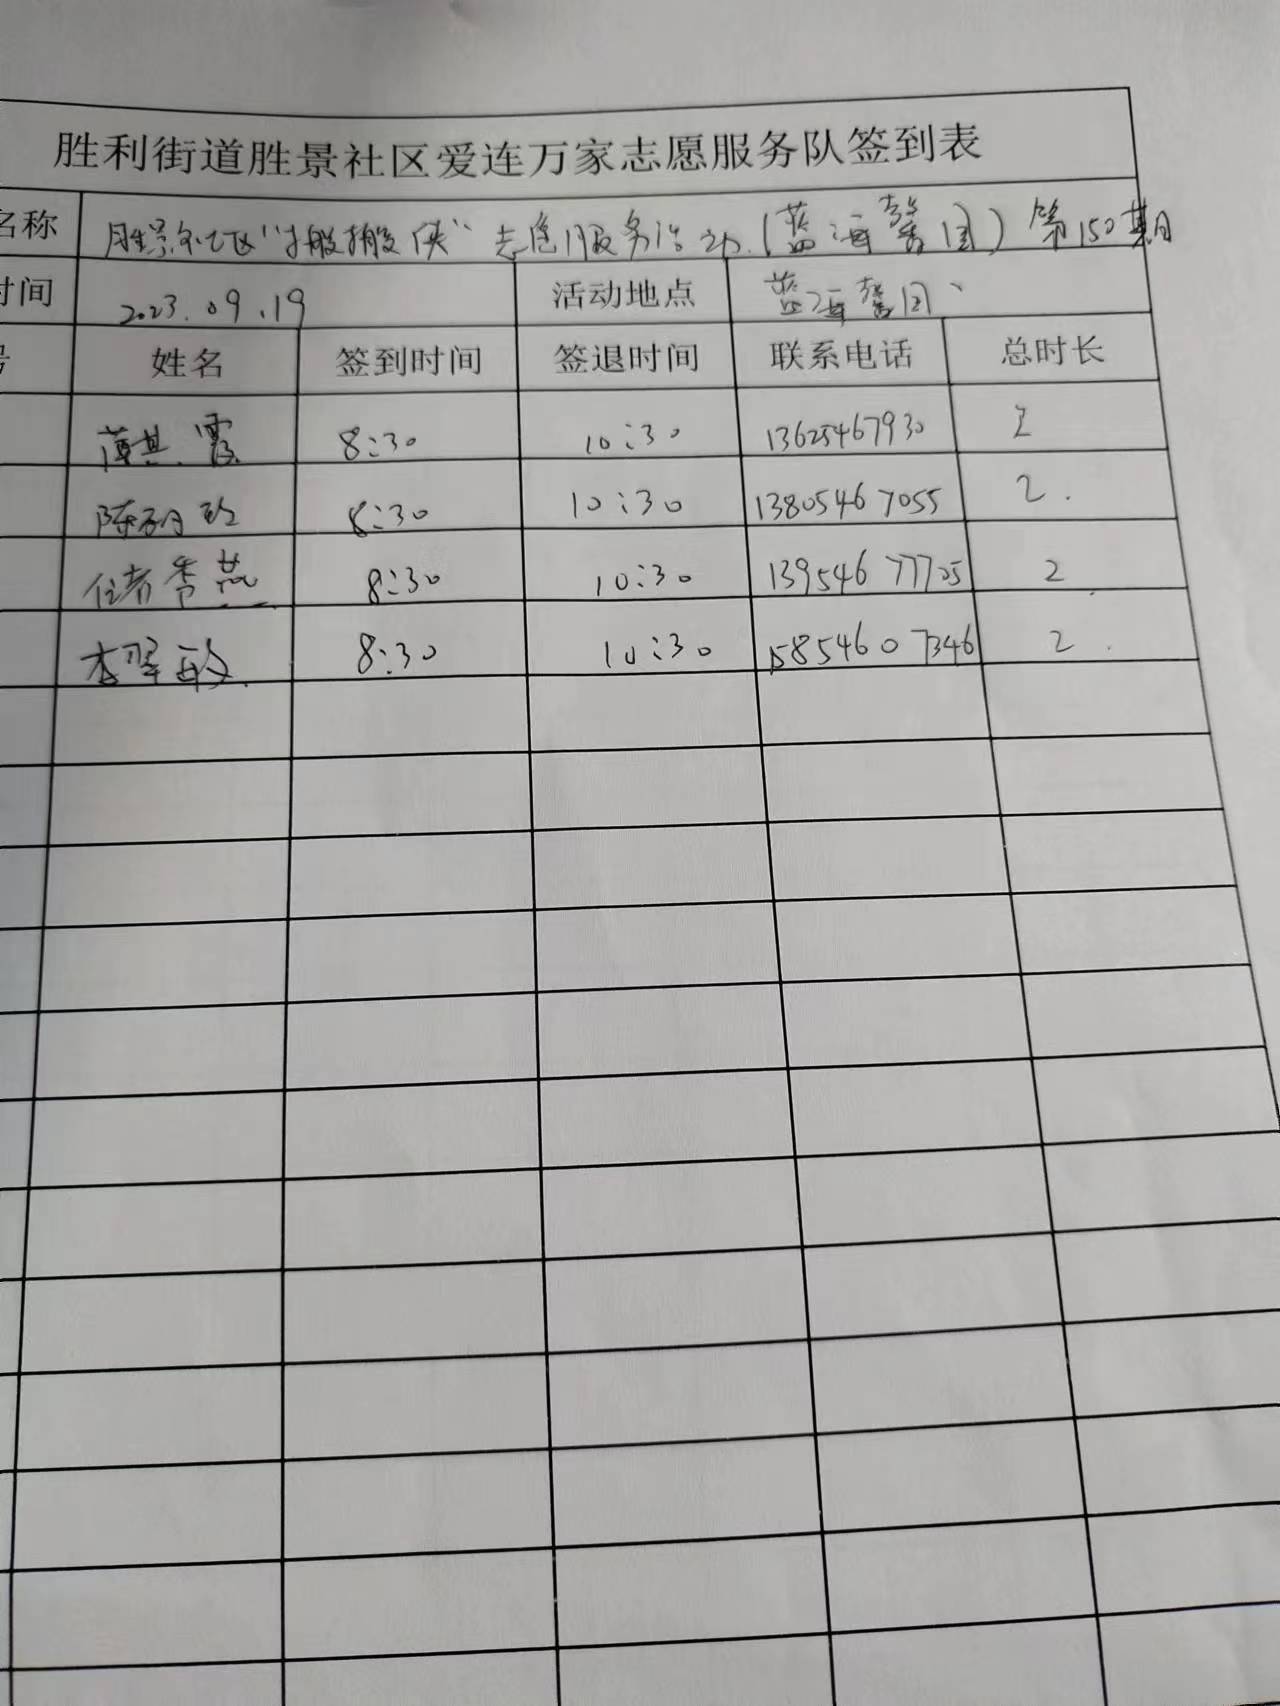 胜利街道胜景社区爱连万家志愿服务队签到表
名称 胜景社区“搬搬侠”志愿服务活动(蓝海馨园)第150期
时间 2023.09.19 活动地点 蓝海馨园
号 姓名 签到时间 签退时间 联系电话 总时长
薄其霞 8:30 10:30 13625467930 2
陈 8:30 10:30 13805467055 2.
褚秀燕 8:30 10:30 13954677725 2
李翠敏 8:30 10:30 15854607346 2.